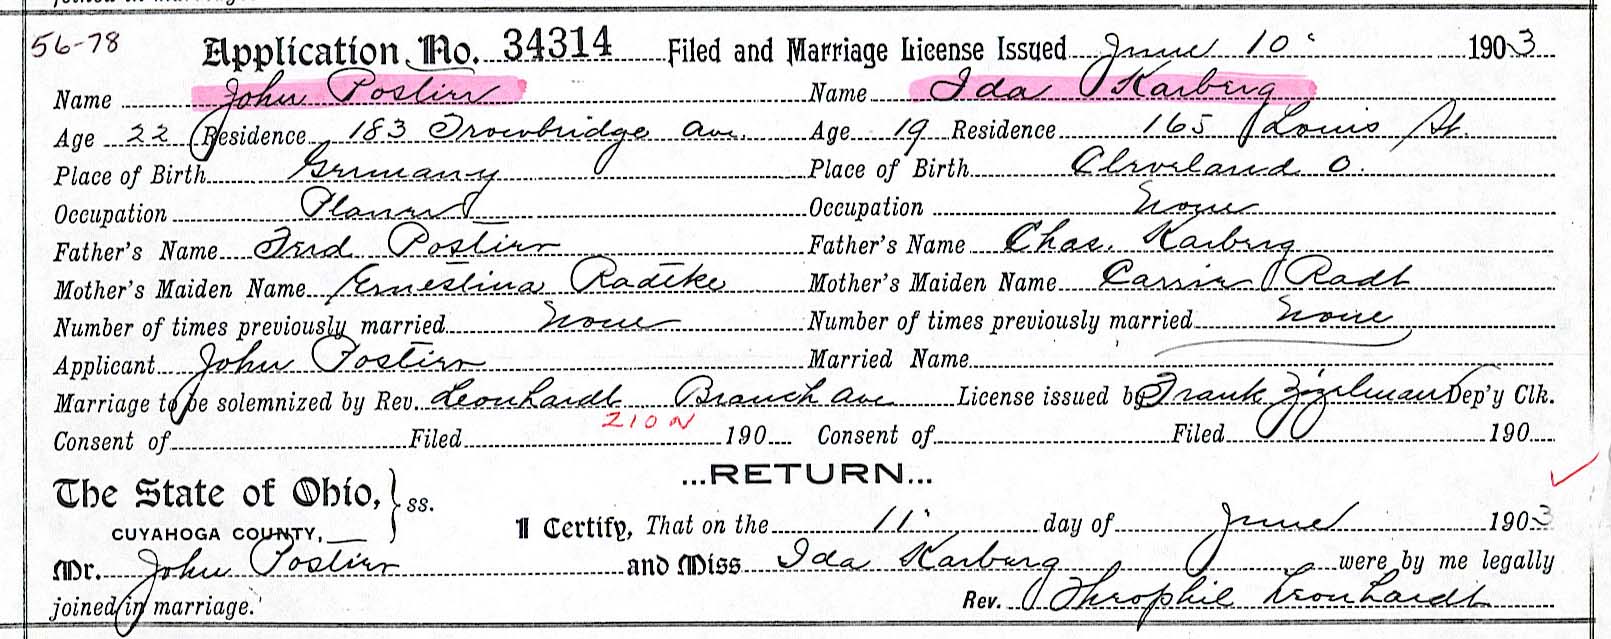 joined in marriage.
56-78 Application No. 34314 Filed and Marriage License Issued June 10 1903
Name John Postier Name Ida Karberg
Age 22 Residence 183 Trowbridge Ave. Age 19 Residence 165 Louis St.
Place of Birth Germany Place of Birth Cleveland O.
Occupation Planer Occupation None
Father's Name Ferd Postier Father's Name Chas. Karberg
Mother's Maiden Name Ernestina Radtke Mother's Maiden Name Carrie Radt
Number of times previously married None Number of times previously married None
Applicant John Postier Married Name
Marriage to be solemnized by Rev. Leonhardt Branch Ave License issued by Frank Zizelman Dep'y Clk.
ZION
Consent of Filed 190 Consent of Filed 190
...RETURN...
The State of Ohio, } ss.
CUYAHOGA COUNTY,
I Certify, That on the 11 day of June 1903
Mr. John Postier and Miss Ida Karberg were by me legally
joined in marriage. Rev. Theophil Leonhardt